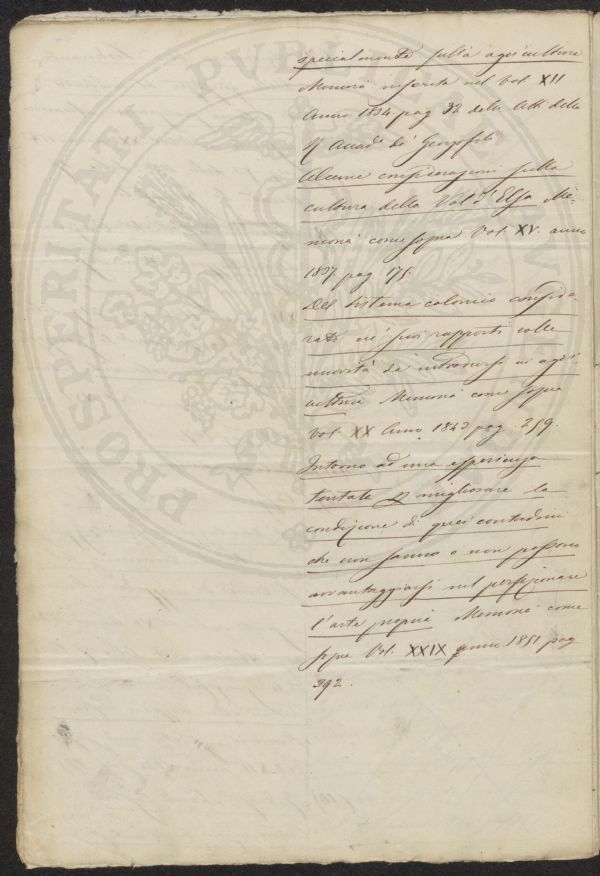 specialmente sull'agricultura
Memoria inserita nel Vol XII
Anno 1834 pag 32 delle Atti della
R Accad.a de' Georgofili
Alcune considerazioni sulla
cultura della Val d'Elsa Me-
moria come sopra Vol. XV. anno
1837 pag 175.
Del Sistema colonico conside-
rato ne' suoi rapporti colle
novità da introdursi in agri-
cultura Memoria come sopra
Vol XX Anno 1842 pag. 259.
Intorno ad una esperienza
tentata p migliorare la
condizione di quei contadini
che non sanno o non possono
avvantaggiarsi nel perfezionare
l'arte propria Memoria come
sopra Vol. XXIX anno 1851 pag
392.
PROSPERITATI PUBLICAE